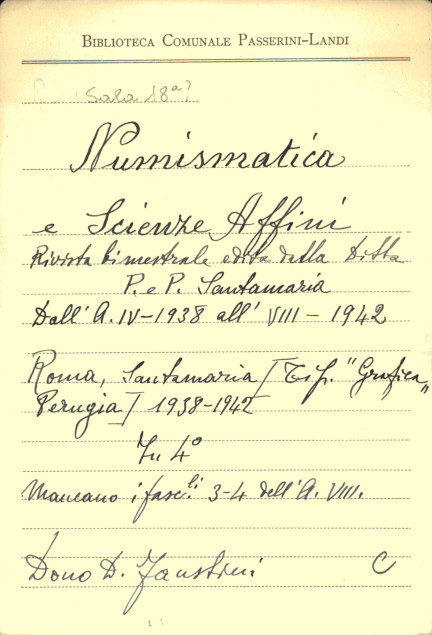 BIBLIOTECA COMUNALE PASSERINI-LANDI
Sala 18ª?
Numismatica
e Scienze Affini
Rivista bimestrale edita dalla Ditta
P. e P. Santamaria
Dall' A. IV-1938 all' VIII - 1942
Roma, Santamaria [Tip. "Grafica"
Perugia] 1938-1942
In 4°
Mancano i fasc.li 3-4 dell' A. VIII.
Dono D. Faustini C